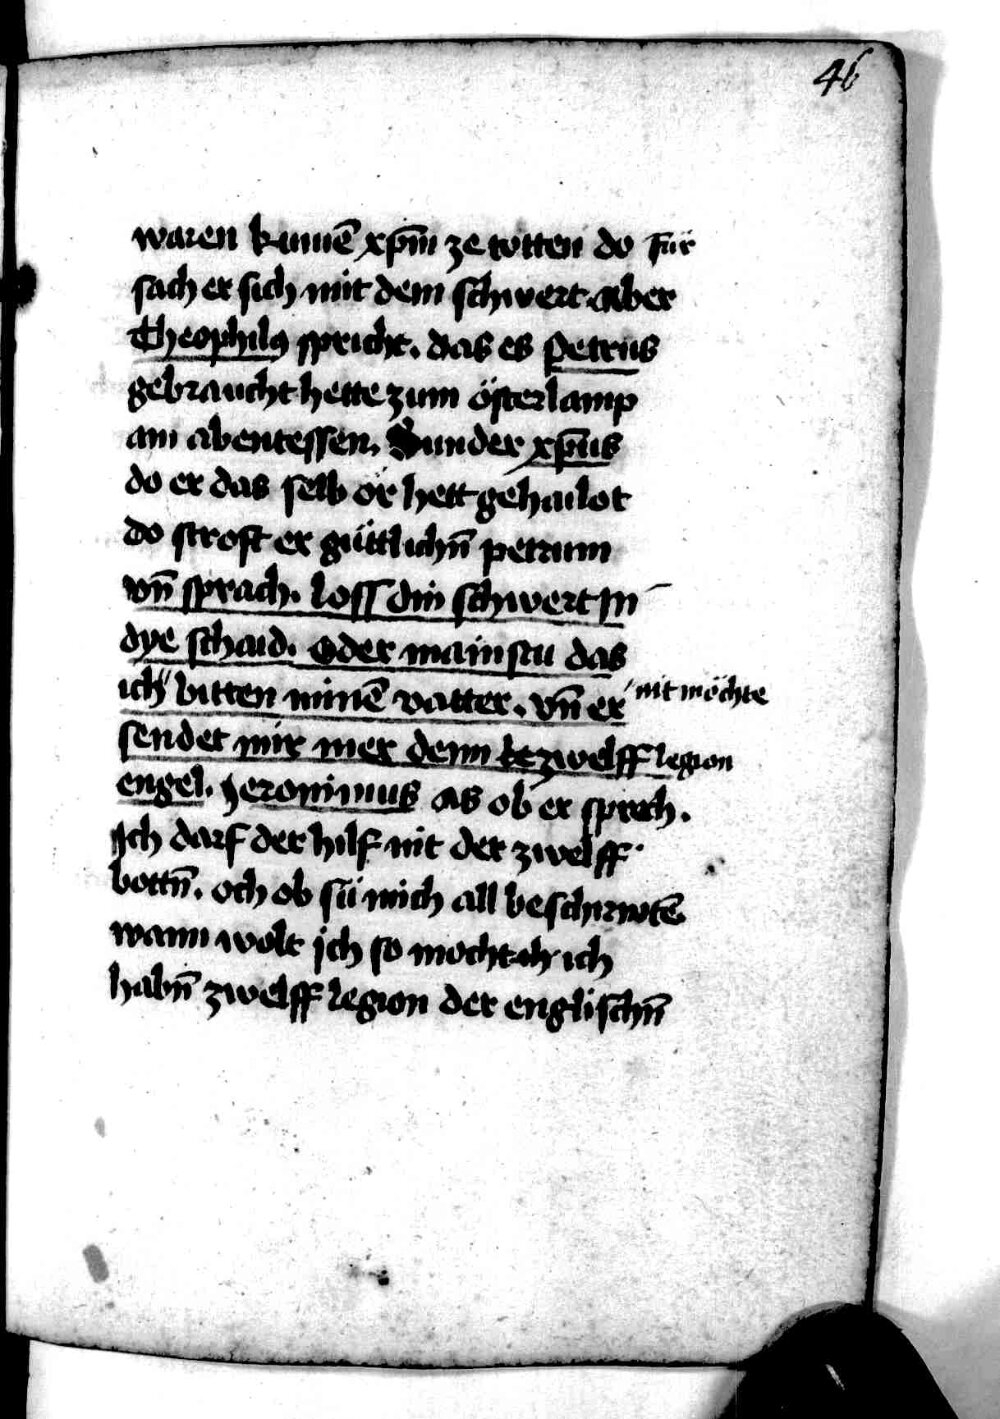 46
waren kumē xp̄m ze totten do für
sach er sich mit dem schwert aber
Theophilꝯ spricht. das es Petrus
gebraucht hette zum österlamp
am abentessen. Sunder xp̄us
do er das selb ör hett gehailot
do stroft er güttlichn̄ petrum
vn̄ sprach. loss din schwert jn
dye schaid. Oder mainstu das
ich bitten minē vatter. vn̄ er nit möchte
sendet mir mer denn zwelff legion
engel. Jeronimus as ob er sprech.
Ich darf der hilf nit der zwelff
bottn̄. och ob sü mich all beschirmtē
wann wolt jch so mocht ich
habn̄ zwelff legion der englischn̄